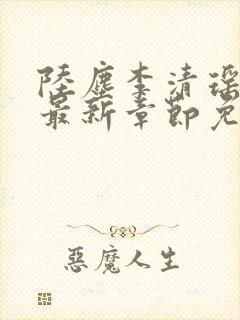 陸塵李清瑤
最新章節免
惡魔人生